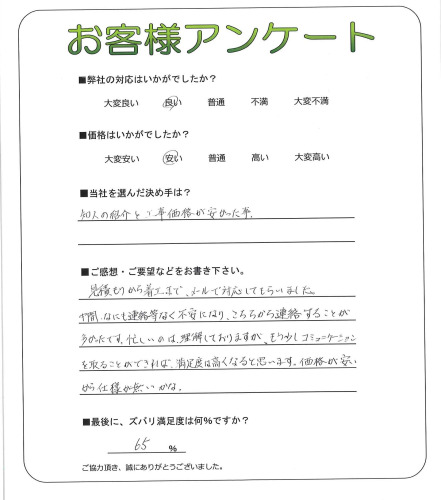 お客様アンケート
■弊社の対応はいかがでしたか？
大変良い 良い 普通 不満 大変不満
■価格はいかがでしたか？
大変安い 安い 普通 高い 大変高い
■当社を選んだ決め手は？
知人の紹介と工事価格が安かった事。
■ご感想・ご要望などをお書き下さい。
見積もりから着工まで、メールで対応してもらいました。
間、なにも連絡等なく不安になり、こちらから連絡することが
多かったです。忙しいのは、理解しておりますが、もう少しコミュニケーション
を取ることができれば、満足度は高くなると思います。価格が安い
から仕様が無いかな。
■最後に、ズバリ満足度は何%ですか？
65 %
ご協力頂き、誠にありがとうございました。